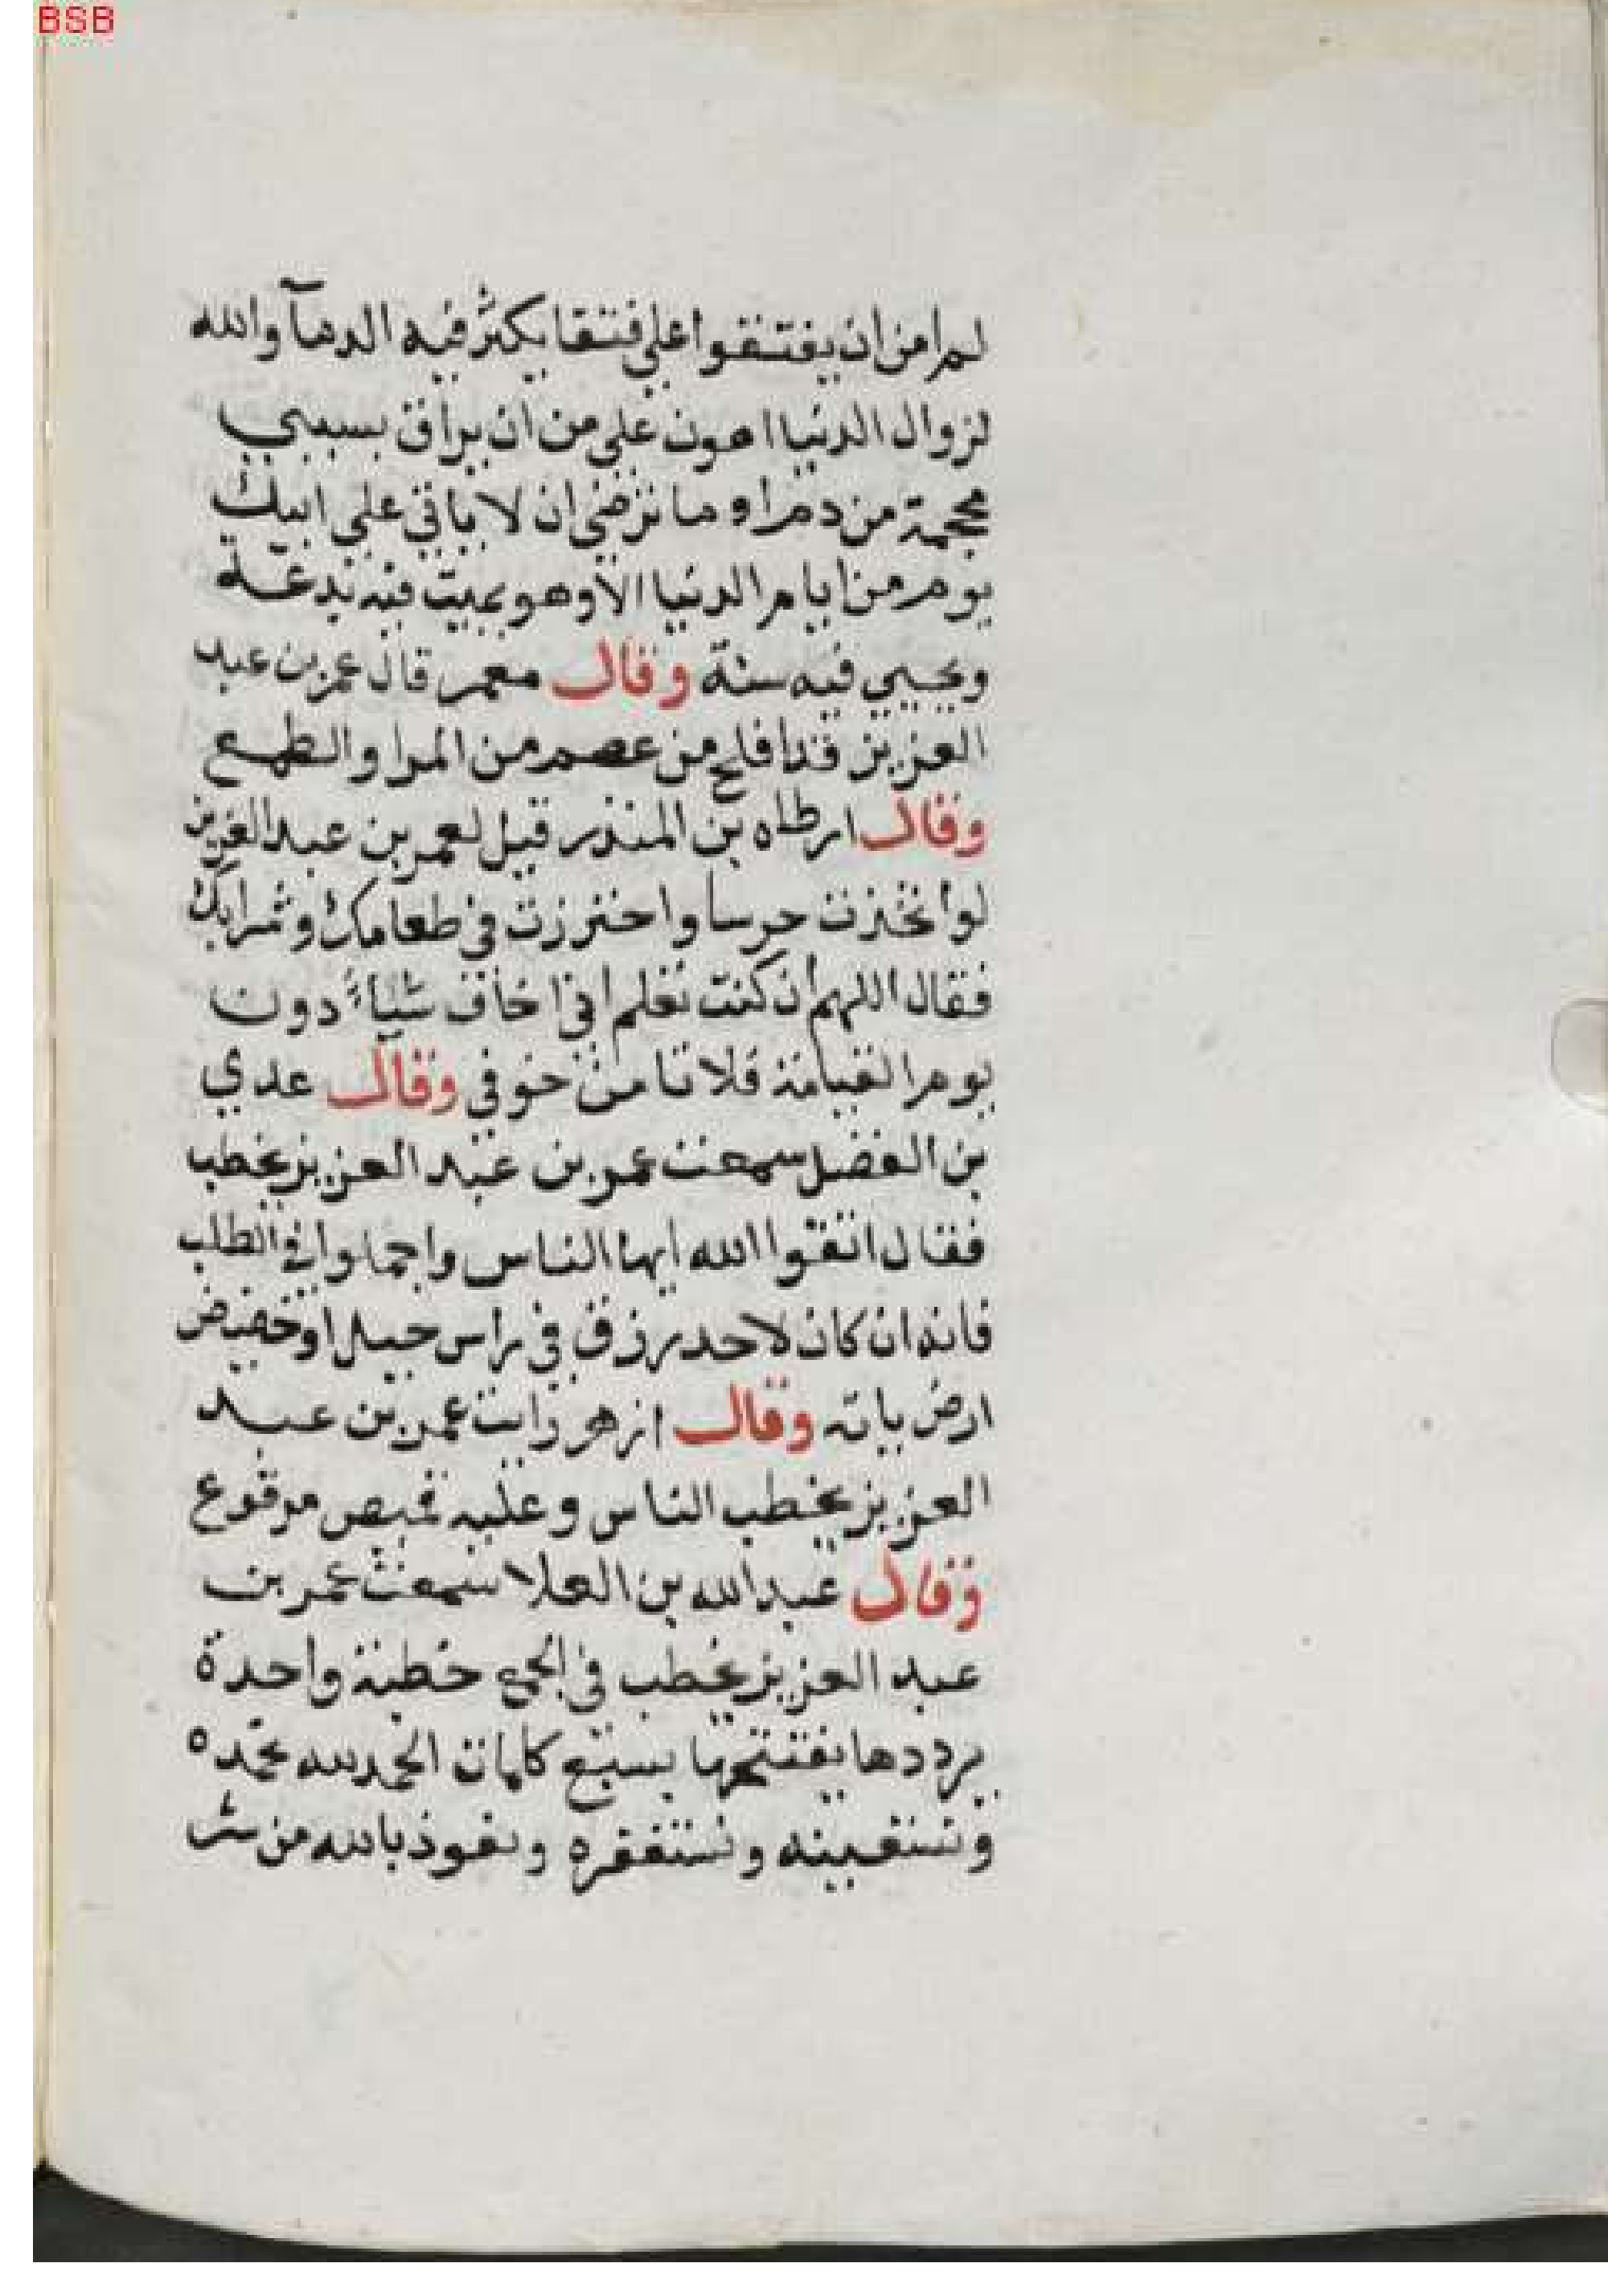 BSB
لم امن ان يفتقوا علي فتقا يكثر فيه الدمآ والله
لزوال الدنيا اهون علي من ان يراق بسببي
محجمة من دم او ما ترضي ان لا ياتي علي ابيك
يوم من ايام الدنيا الا وهو يميت فيه بدعة
ويحيي فيه سنة وقال معمر قال عمر بن عبد
العزيز قد افلح من عصم من المرا والطمع
وقال ارطاه بن المنذر قيل لعمر بن عبد العزيز
لو اتخذت حرسا واحترزت في طعامك وشرابك
فقال اللهم ان كنت تعلم اني اخاف شياء دون
يوم القيامة فلا تامن خوفي وقال عدي
بن الفضل سمعت عمر بن عبد العزيز يخطب
فقال اتقوا الله ايها الناس واجملوا في الطلب
فانه ان كان لاحد رزق في راس جبل او حضيض
ارض ياته وقال ازهر رايت عمر بن عبد
العزيز يخطب الناس وعليه قميص مرقوع
وقال عبد الله بن العلا سمعت عمر بن
عبد العزيز يخطب في الجمع خطبة واحدة
يرددها يفتتحها بسبع كلمات الحمد لله نحمده
ونستعينه ونستغفره ونعوذ بالله من شر